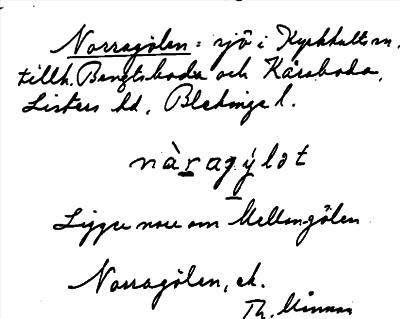 Norragölen: sjö i Kyrkhults sn,
tillh. Bengtsboda och Kåraboda,
Listers hd, Blekinge l.
nàragý̱lət
Ligger norr om Mellangölen
Norragölen, ek.
Th.